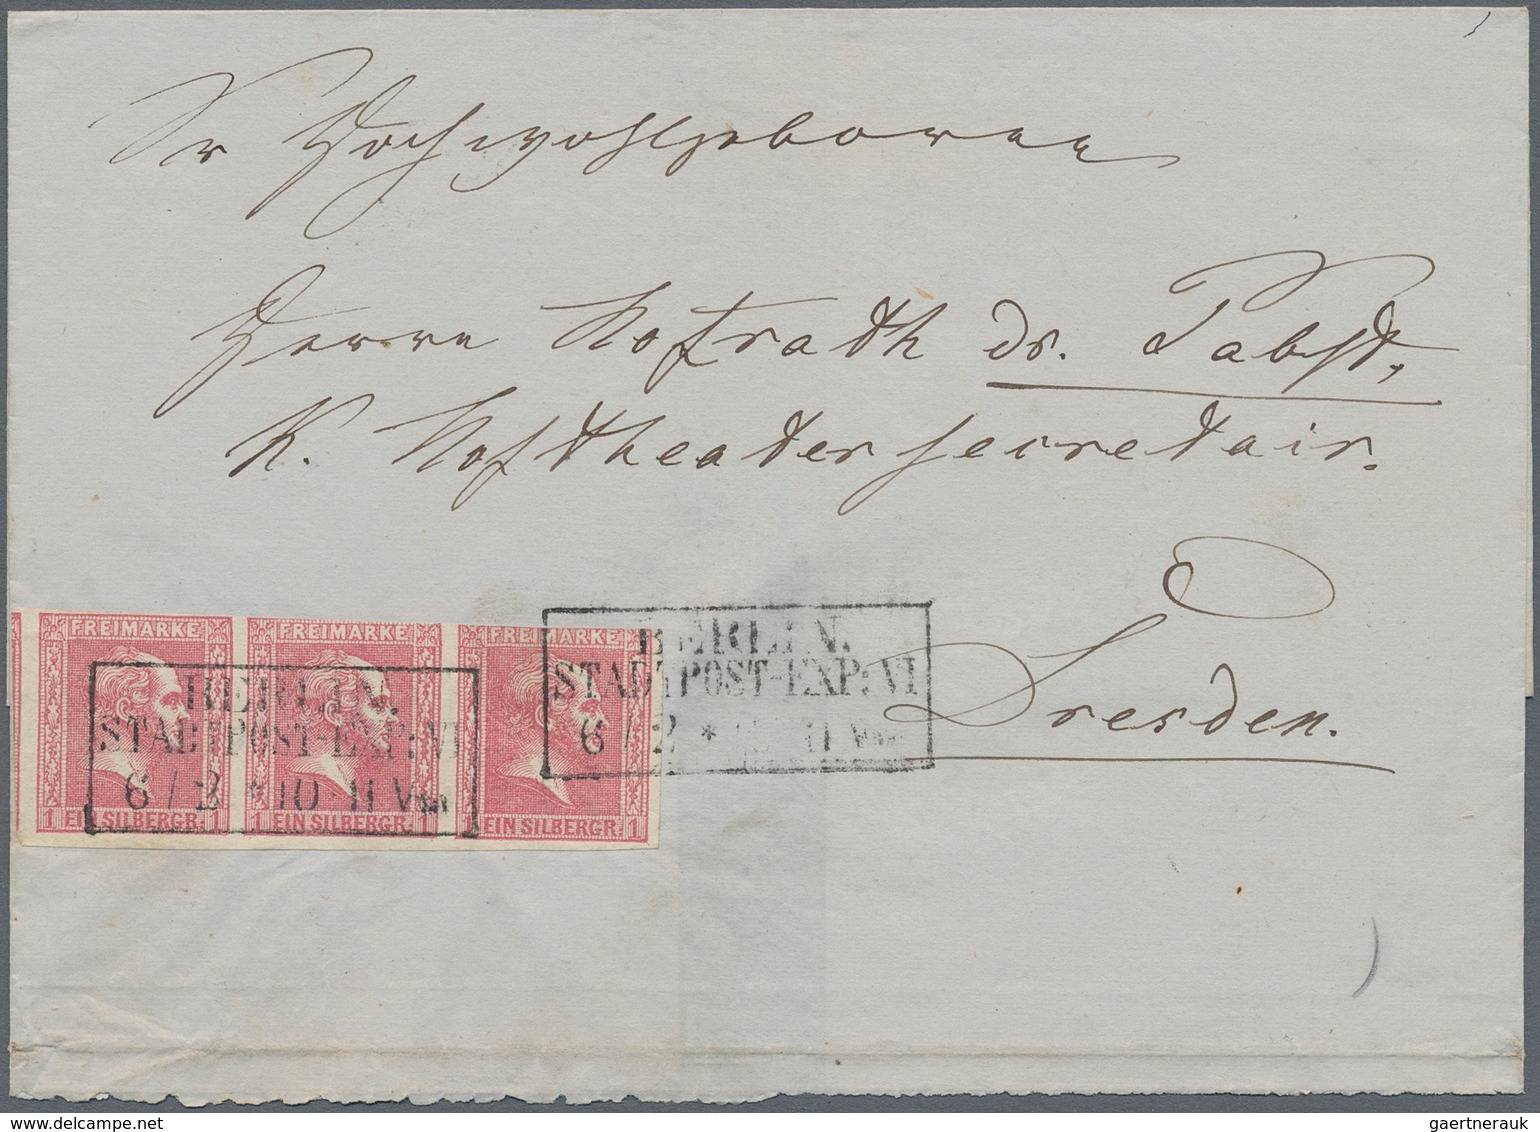 Sr Hochwohlgeboren
Herrn Hofrath Dr. Pabst,
K. Hoftheatersecretair.
Dresden.
FREIMARKE FREIMARKE FREIMARKE
1 EIN SILBERGR. 1 1 EIN SILBERGR. 1 1 EIN SILBERGR. 1
BERLIN.
STADTPOST-EXP: VI
6 / 2 * 10-11 Vm
BERLIN.
STADTPOST-EXP: VI
6 / 2 * 11 Vm
delcampe.net
gaertnerauk